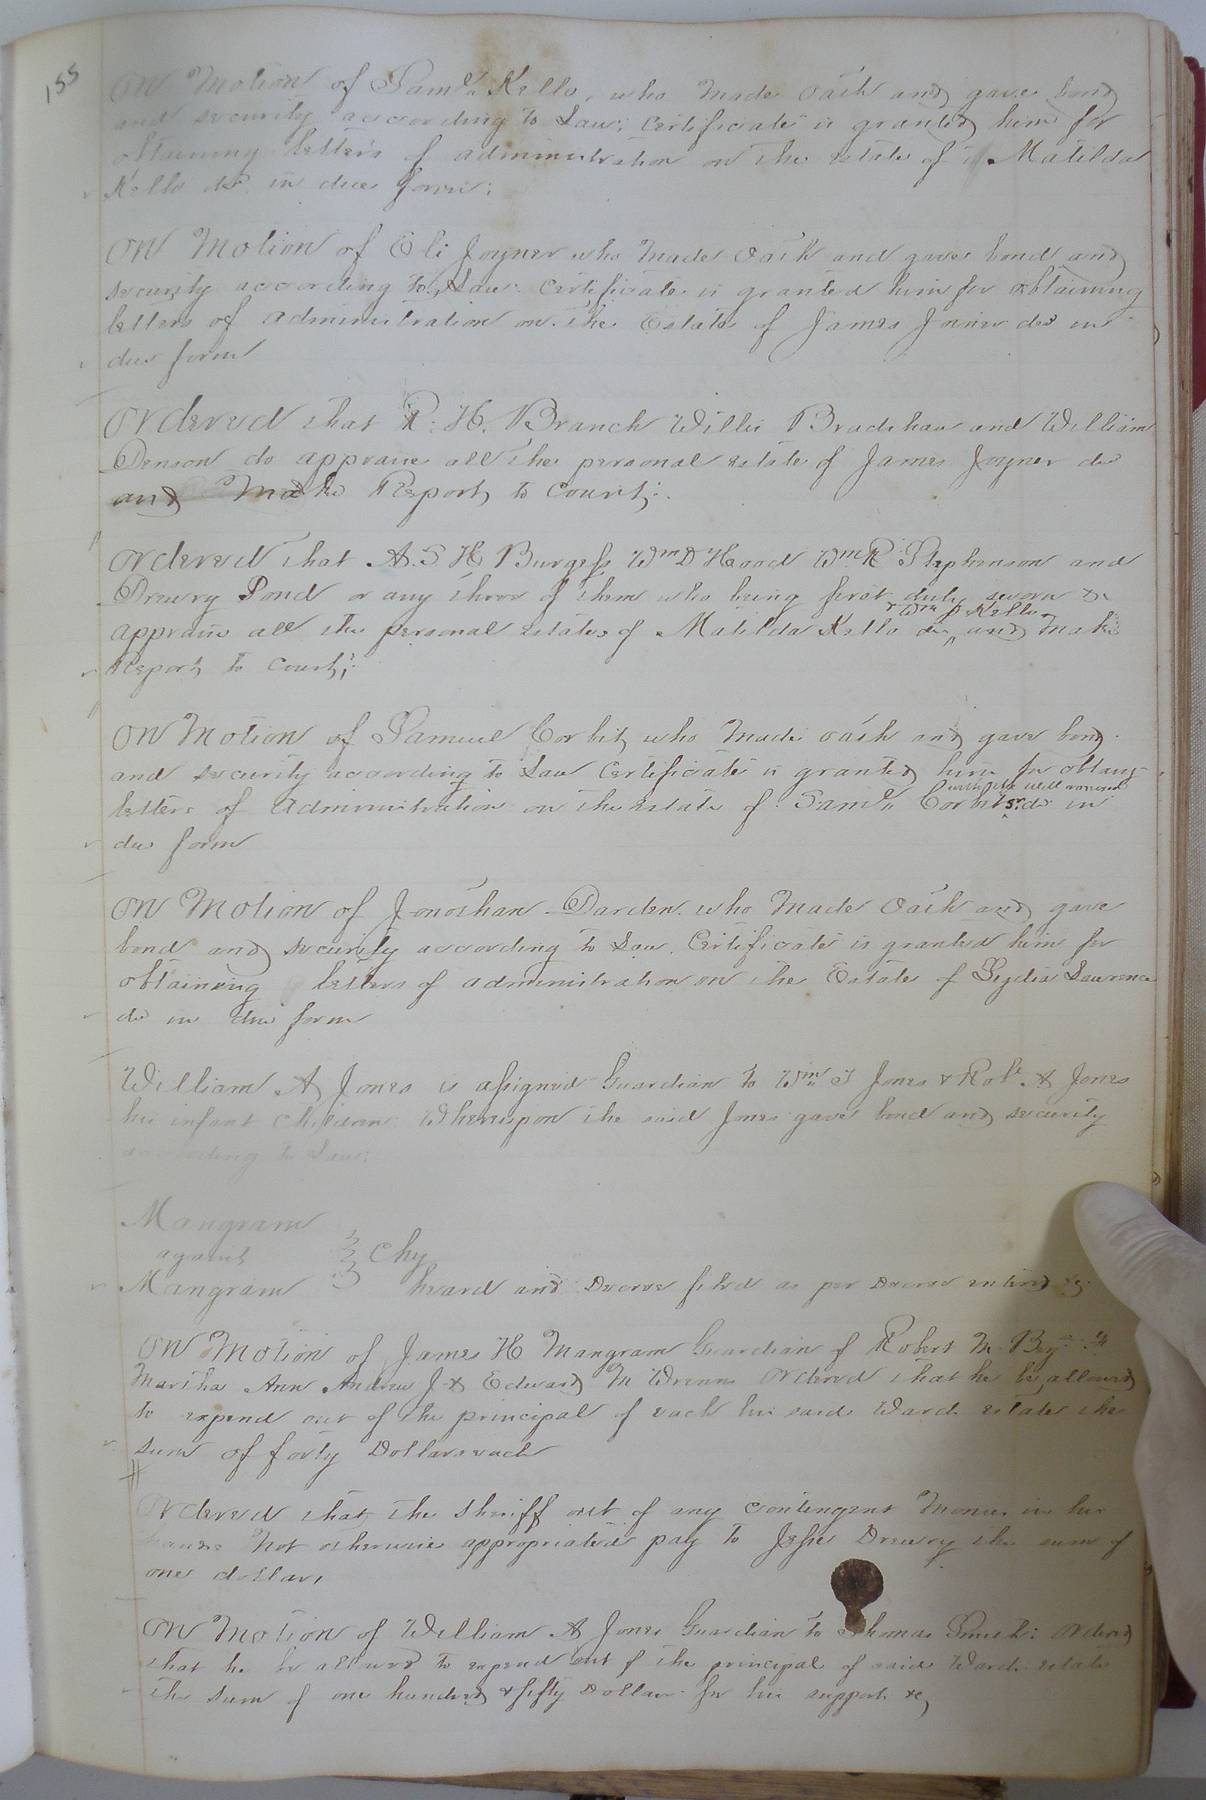 155
On Motion of Saml. Kello, who Made Oath and gave bond
and security according to Law; Certificate is granted him for
obtaining letters of administration on the estate of Matilda
Kello decd. in due form;
On Motion of Eli Joyner who Made Oath and gave bond and
security according to Law. Certificate is granted him for obtaining
letters of Administration on the Estate of James Joiner decd in
due form
Ordered that R. H. Branch Willis Bradshaw and William
Denson do appraise all the personal estate of James Joyner de
and Make Report to Court;
Ordered that A. S. H Burgess Wm D Hood Wm R Stephenson and
Drewry Pond or any three of them who being first duly sworn do
& Wm P Kello
appraise all the personal estate of Matilda Kello de ^ and make
Report to Court;
On Motion of Samuel Corbit, who Made oath and gave bond
and security according to Law Certificate is granted him for obtang
with the will annexed
letters of Administration on the estate of Saml. Corbit Sr. de in
due form
On Motion of Jonathan Darden who Made Oath and gave
bond and security according to Law. Certificate is granted him for
obtaining letters of administration on the Estate of Lydia Lawrence
de in due form
William A Jones is assigned Guardian to Wm. T Jones & Robt. A Jones
his infant Children. Whereupon the said Jones gave bond and security
according to Law;
Mangram
against } Chy
Mangram heard and Decree filed as per Decree entered &c.
On Motion of James H Mangram Guardian of Robert M.
Martha Ann Andrew J. & Edward M Wrenn Ordered that he be allowed
to expend out of the principal of each his said Wards estate the
sum of forty Dollars each
Ordered that the Sheriff out of any contingent Monies in his
hands Not otherwise appropriated pay to Jesse Drewry the sum of
one dollar,
On Motion of William A Jones Guardian to Thomas Smith: Ordered
that he be allowed to expend out of the principal of said Wards estate
the sum of one hundred & fifty Dollars for his support &c,